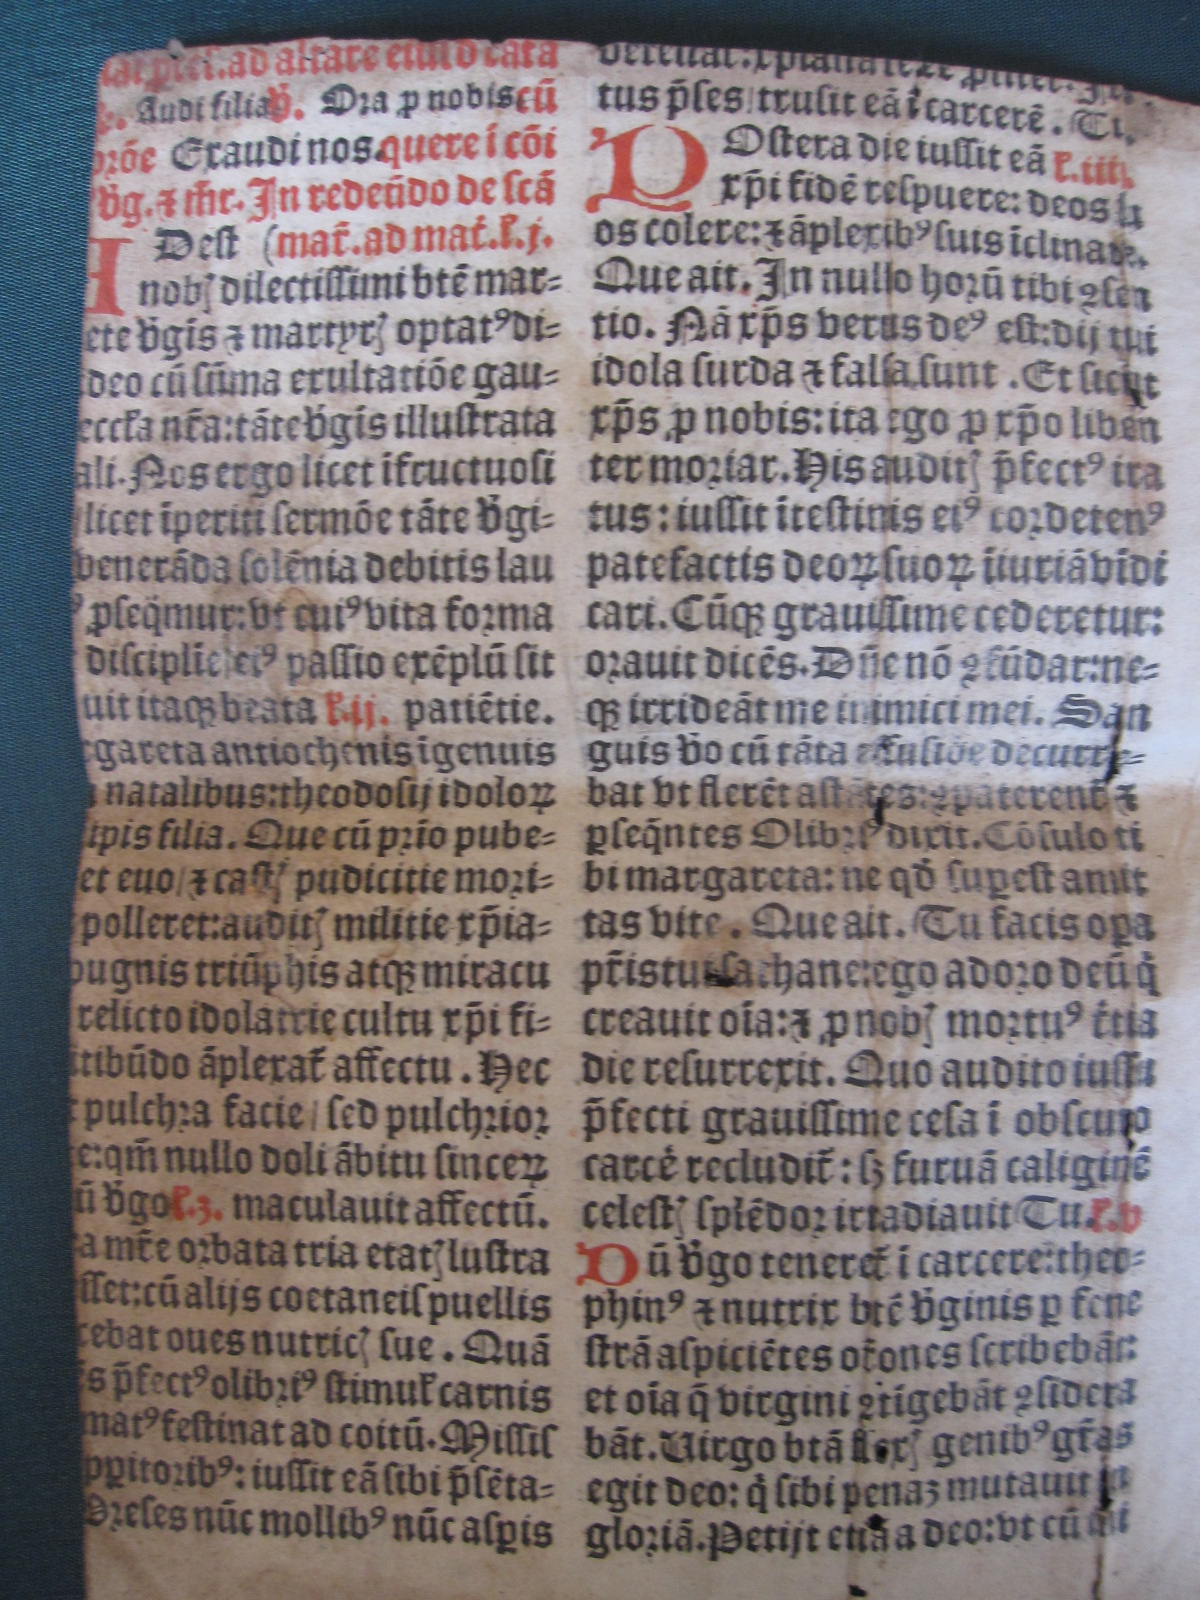 ad altare eiusd cata
Audi filia ꝟ. Ora ꝓ nobis cū
orōe Exaudi nos. quere ī cōi
ꝟg. ⁊ m̄r. In redeūdo de scā
Dest (mat̄. ad mat̄. ł. j.
nobꝭ dilectissimi btē mar⸗
ete ꝟgīs ⁊ martyrꝭ optatꝰ di⸗
deo cū sūma exultatiōe gau⸗
eccł'a nr̄a: tāte ꝟgīs illustrata
ali. Nos ergo licet īfructuosi
licet īperiti sermōe tāte ꝟgi⸗
venerāda solēnia debitis lau
ꝓseq̄mur: vt cuiꝰ vita forma
discipliē eiꝰ passio exēplū sit
uit itaqꝫ beata ł. ij. patiētie.
rgareta antiochenis īgenuis
natalibus: theodosij idoloꝝ
ipis filia. Que cū prīo pube⸗
et euo / ⁊ castꝭ pudicitie mori⸗
polleret: auditꝭ militie xp̄ia⸗
pugnis triūphis atqꝫ miracu
relicto idolatrie cultu xp̄i fi⸗
itibūdo āplexat̄ affectu. Hec
pulchra facie / sed pulchrior
e: qm̄ nullo doli ābitu sinceꝝ
ū ꝟgo ł. 3. maculauit affectū.
a mr̄e orbata tria etatꝭ lustra
sset: cū alijs coetaneis puellis
cebat oues nutricꝭ sue. Quā
s p̄fectꝰ olibriꝰ stimuł carnis
matꝰ festinat ad coitū. Missis
ꝑitoribꝰ: iussit eā sibi p̄sēta⸗
Preses nūc mollibꝰ nūc asꝑis
tus p̄ses / trusit eā ī carcerē. Tu.
POstera die iussit eā ł. iiij.
xp̄i fidē respuere: deos su
os colere: ⁊ āplexibꝰ suis īclinare.
Que ait. In nullo horū tibi ꝯsen
tio. Nā xp̄s verus deꝰ est: dij tui
idola surda ⁊ falsa sunt. Et sicut
xp̄s ꝓ nobis: ita ego ꝓ xp̄o liben
ter moriar. His auditꝭ p̄fectꝰ ira
tus: iussit ītestinis eiꝰ cordetenꝰ
patefactis deoꝝ suoꝝ īiuriā vīdi
cari. Cūqꝫ grauissime cederetur:
orauit dicēs. Dn̄e nō ꝯfūdar: ne⸗
qꝫ irrideāt me inimici mei. San
guis ꝟo cū tāta effusiōe decurre⸗
bat vt flerēt astātes: ⁊ paterent̄ ⁊
ꝑseq̄ntes Olibriꝰ dixit. Cōsulo ti
bi margareta: ne qď suꝑest amit
tas vite. Que ait. Tu facis oꝑa
pr̄is tui sathane: ego adoro deū q̇
creauit oīa: ⁊ ꝓ nobꝭ mortuꝰ t̄tia
die resurrexit. Quo audito iussu
p̄fecti grauissime cesa ī obscuro
carcē recludit̄: sꝫ furuā caliginē
celestꝭ splēdor irradiauit Tu. ł. v
DŪ ꝟgo teneret̄ ī carcere: theo⸗
phinꝰ ⁊ nutrix btē ꝟginis ꝑ fene
strā aspiciētes or̄ones scribebāt:
et oīa q̄ virgini ꝯtīgebāt ꝯsidera
bāt. Uirgo btā flexꝭ genibꝰ gr̄as
egit deo: q̇ sibi penaꝫ mutauit in
gloriā. Petijt etiā a deo: vt cū